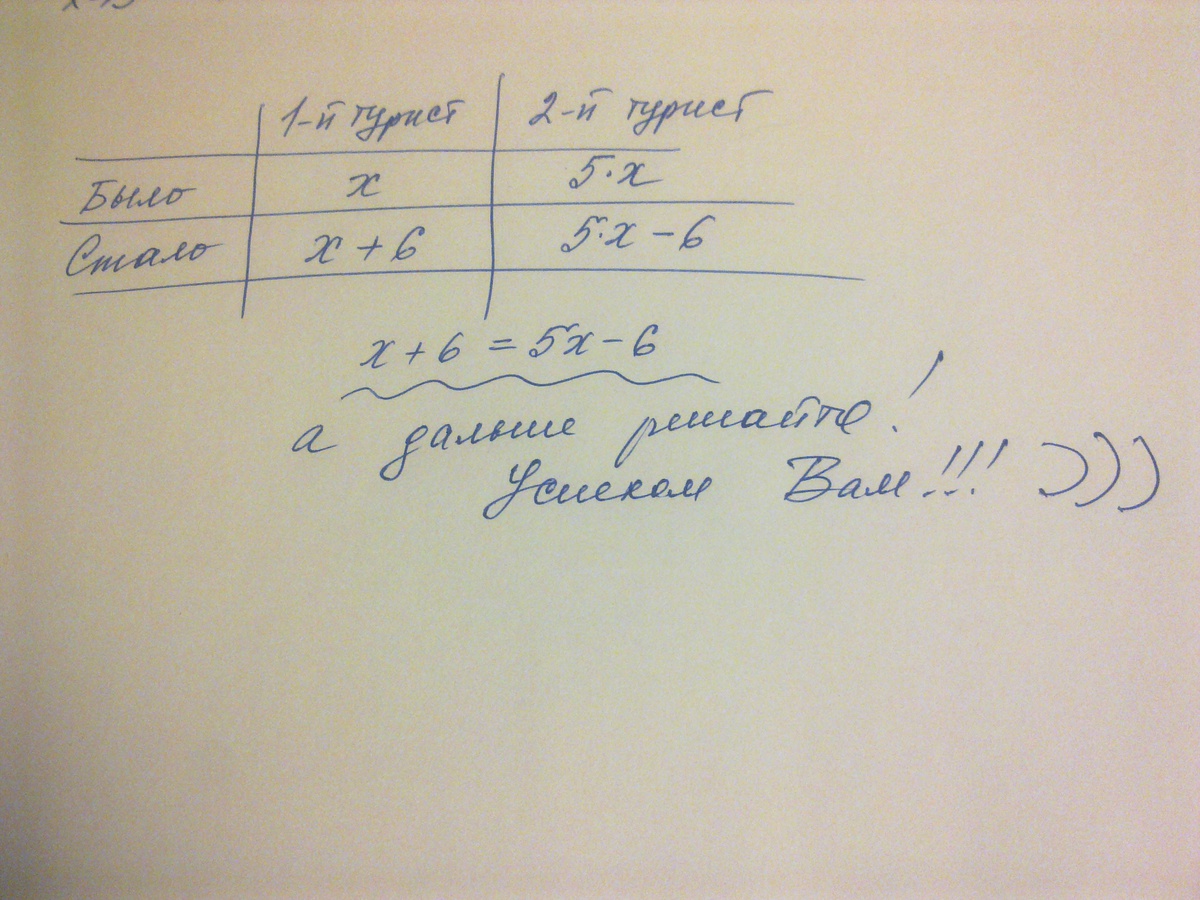 1-й турист 2-й турист
Было x 5·x
Стало x + 6 5·x - 6
x + 6 = 5x - 6
а дальше решайте!
Успехом Вам!!! )))